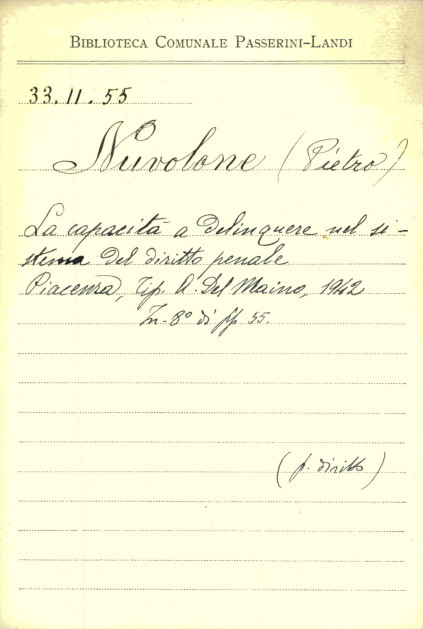 BIBLIOTECA COMUNALE PASSERINI-LANDI
33.11.55
Nuvolone (Pietro)
La capacità a delinquere nel si-
stema del diritto penale
Piacenza, Tip. A. Del Maino, 1942
In-8° di pp. 55.
(p. diritto)